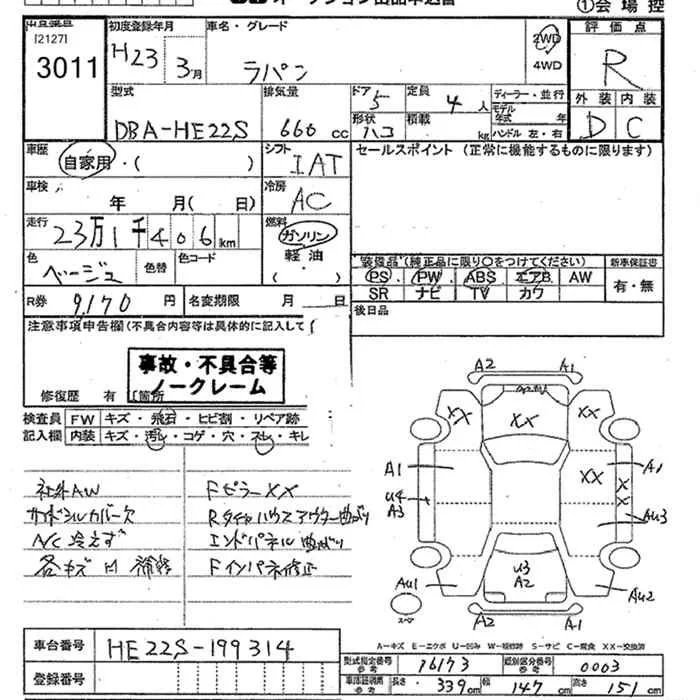 ①会場控
出品番号 初度登録年月 車名・グレード 評価点
[2127] H23 3月 ラパン 2WD 4WD R
3011
型式 排気量 ドア 定員 ディーラー・並行 外装 内装
DBA-HE22S 660cc 5 4人 モデル 年式 年 D C
形状 ハコ 積載 kg ハンドル 左・右
車歴 自家用・( ) シフト IAT セールスポイント (正常に機能するものに限ります)
車検 年 月( 日) 冷房 AC
走行 23万1千406km 燃料 ガソリン
軽油・( )
色 ベージュ 色替 色コード
装備品(純正品に限り○をつけてください) 新車保証書
PS PW ABS エアB AW 有・無
SR ナビ TV カワ
R券 9,170円 名変期限 月 日 後日品
注意事項申告欄(不具合内容等は具体的に記入して
事故・不具合等
ノークレーム
修復歴 有 [箇所
検査員 FW キズ・飛石・ヒビ割・リペア跡
記入欄 内装 キズ・汚レ・コゲ・穴・スレ・キレ
社外AW FピラーXX
サイドシルカバー欠 Rタイヤハウスアウター曲がり
A/C冷えず エンドパネル曲がり
各キズ凹補修 Fインパネ修正
A2 A1
XX XX XX
A1 XX A1
U4 X
A3 X AU3
U3
A2
AU1 AU2
スペア A2 A1
A-キズ E-エクボ U-凹み W-補修跡 S-サビ C-腐食 XX-交換済
車台番号 HE22S-199314
型式指定番号 参考 16173 類別区分番号 参考 0003
登録番号 車庫証明用 参考 長さ 339cm 幅 147cm 高さ 151cm